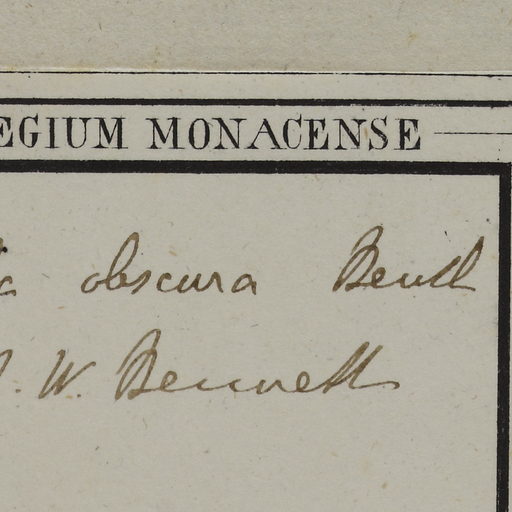 EGIUM MONACENSE
obscura Benth
. W. Bennett